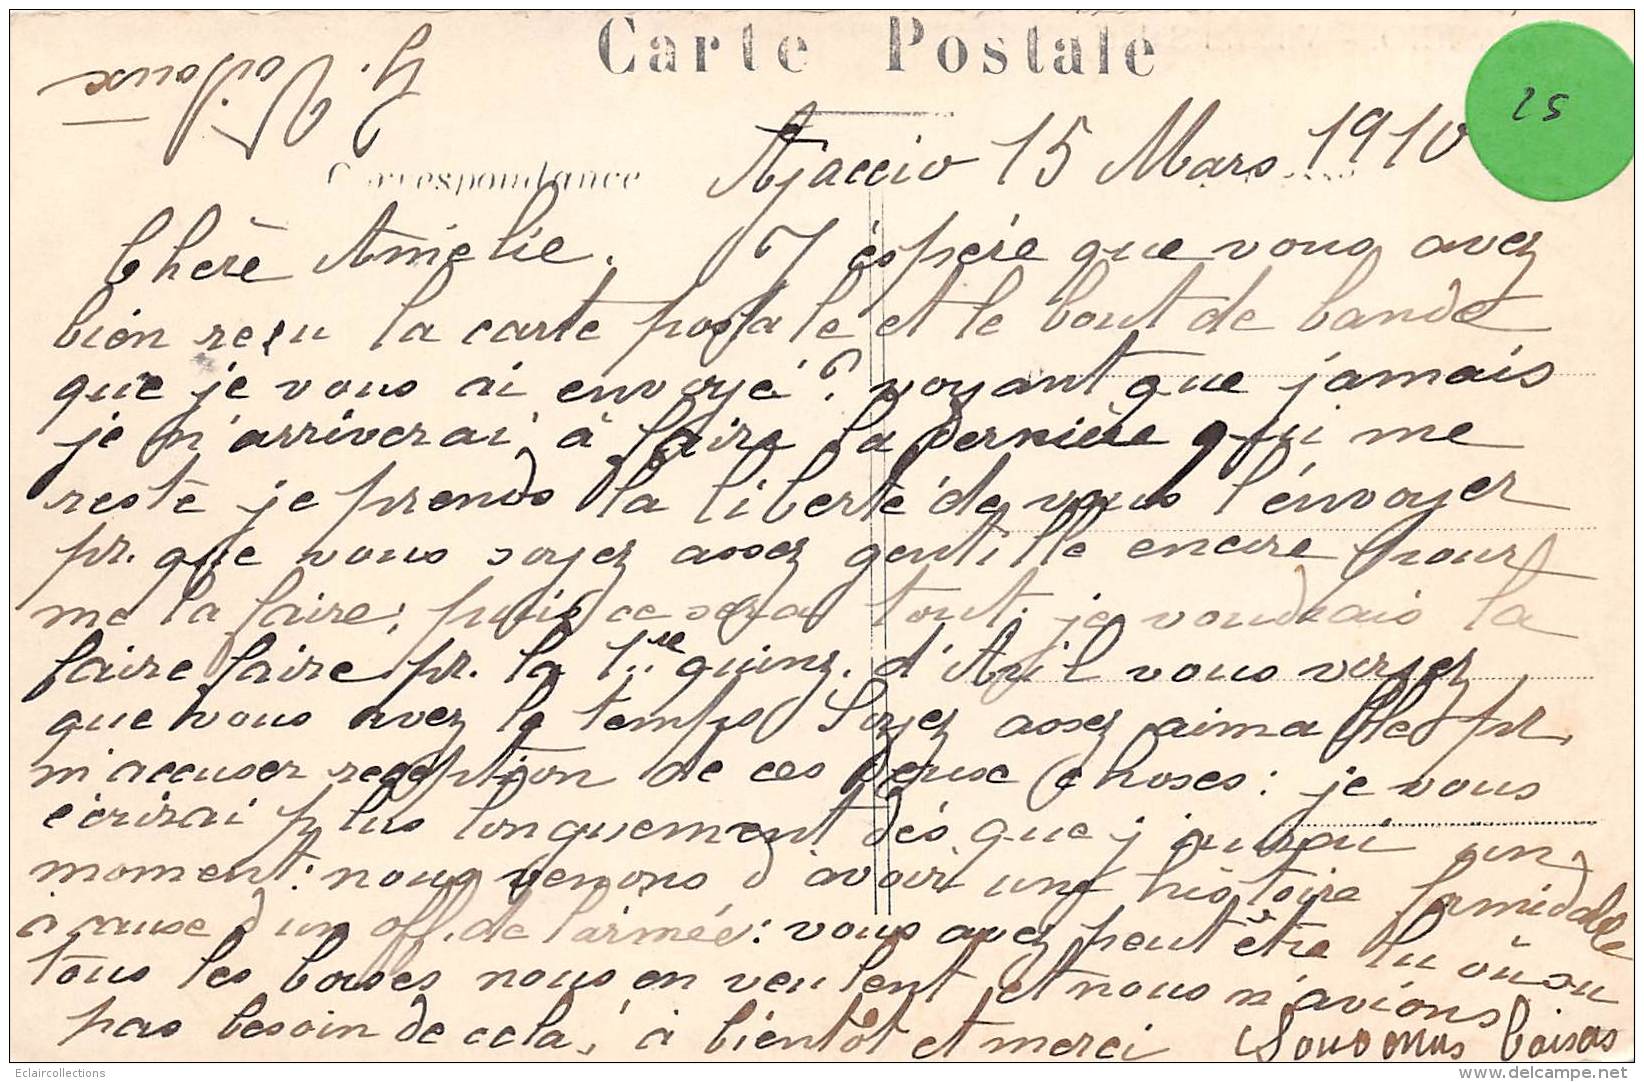 Carte Postale
25
Correspondance
Ajaccio 15 Mars 1910
Chère Amélie. J'éspère que vous avez
bien reçu la carte postale et le bout de bande
que je vous ai envoyé? voyant que jamais
je n'arriverai à faire la dernière qui me
reste je prends la liberté de vous l'envoyer
pr. que vous soyez assez gentille encore pour
me la faire; puis ce sera tout. je voudrais la
faire faire pr. la 1ère quinz. d'Avril vous verrez
que vous avez le temps Soyez assez aimable pr.
m'accuser reception de ces deux choses: je vous
écrirai plus longuement dès que j'aurai un
moment: nous venons d'avoir une histoire formidable
à cause d'un off. de l'armée: vous avez peut être lu où su
tous les bouses nous en veulent et nous n'avions
pas besoin de cela! à bientôt et merci baisers
Eclaircollections
delcampe.net